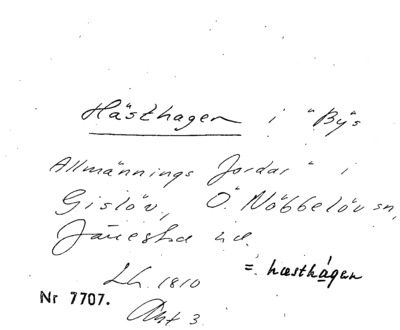 Hästhagen i "Bÿs
Allmännings Jordar" i
Gislöv, Ö Nöbbelöv sn,
Järrestad hd.
Lh. 1810
= hæsthågen
Nr 7707.
Akt 3